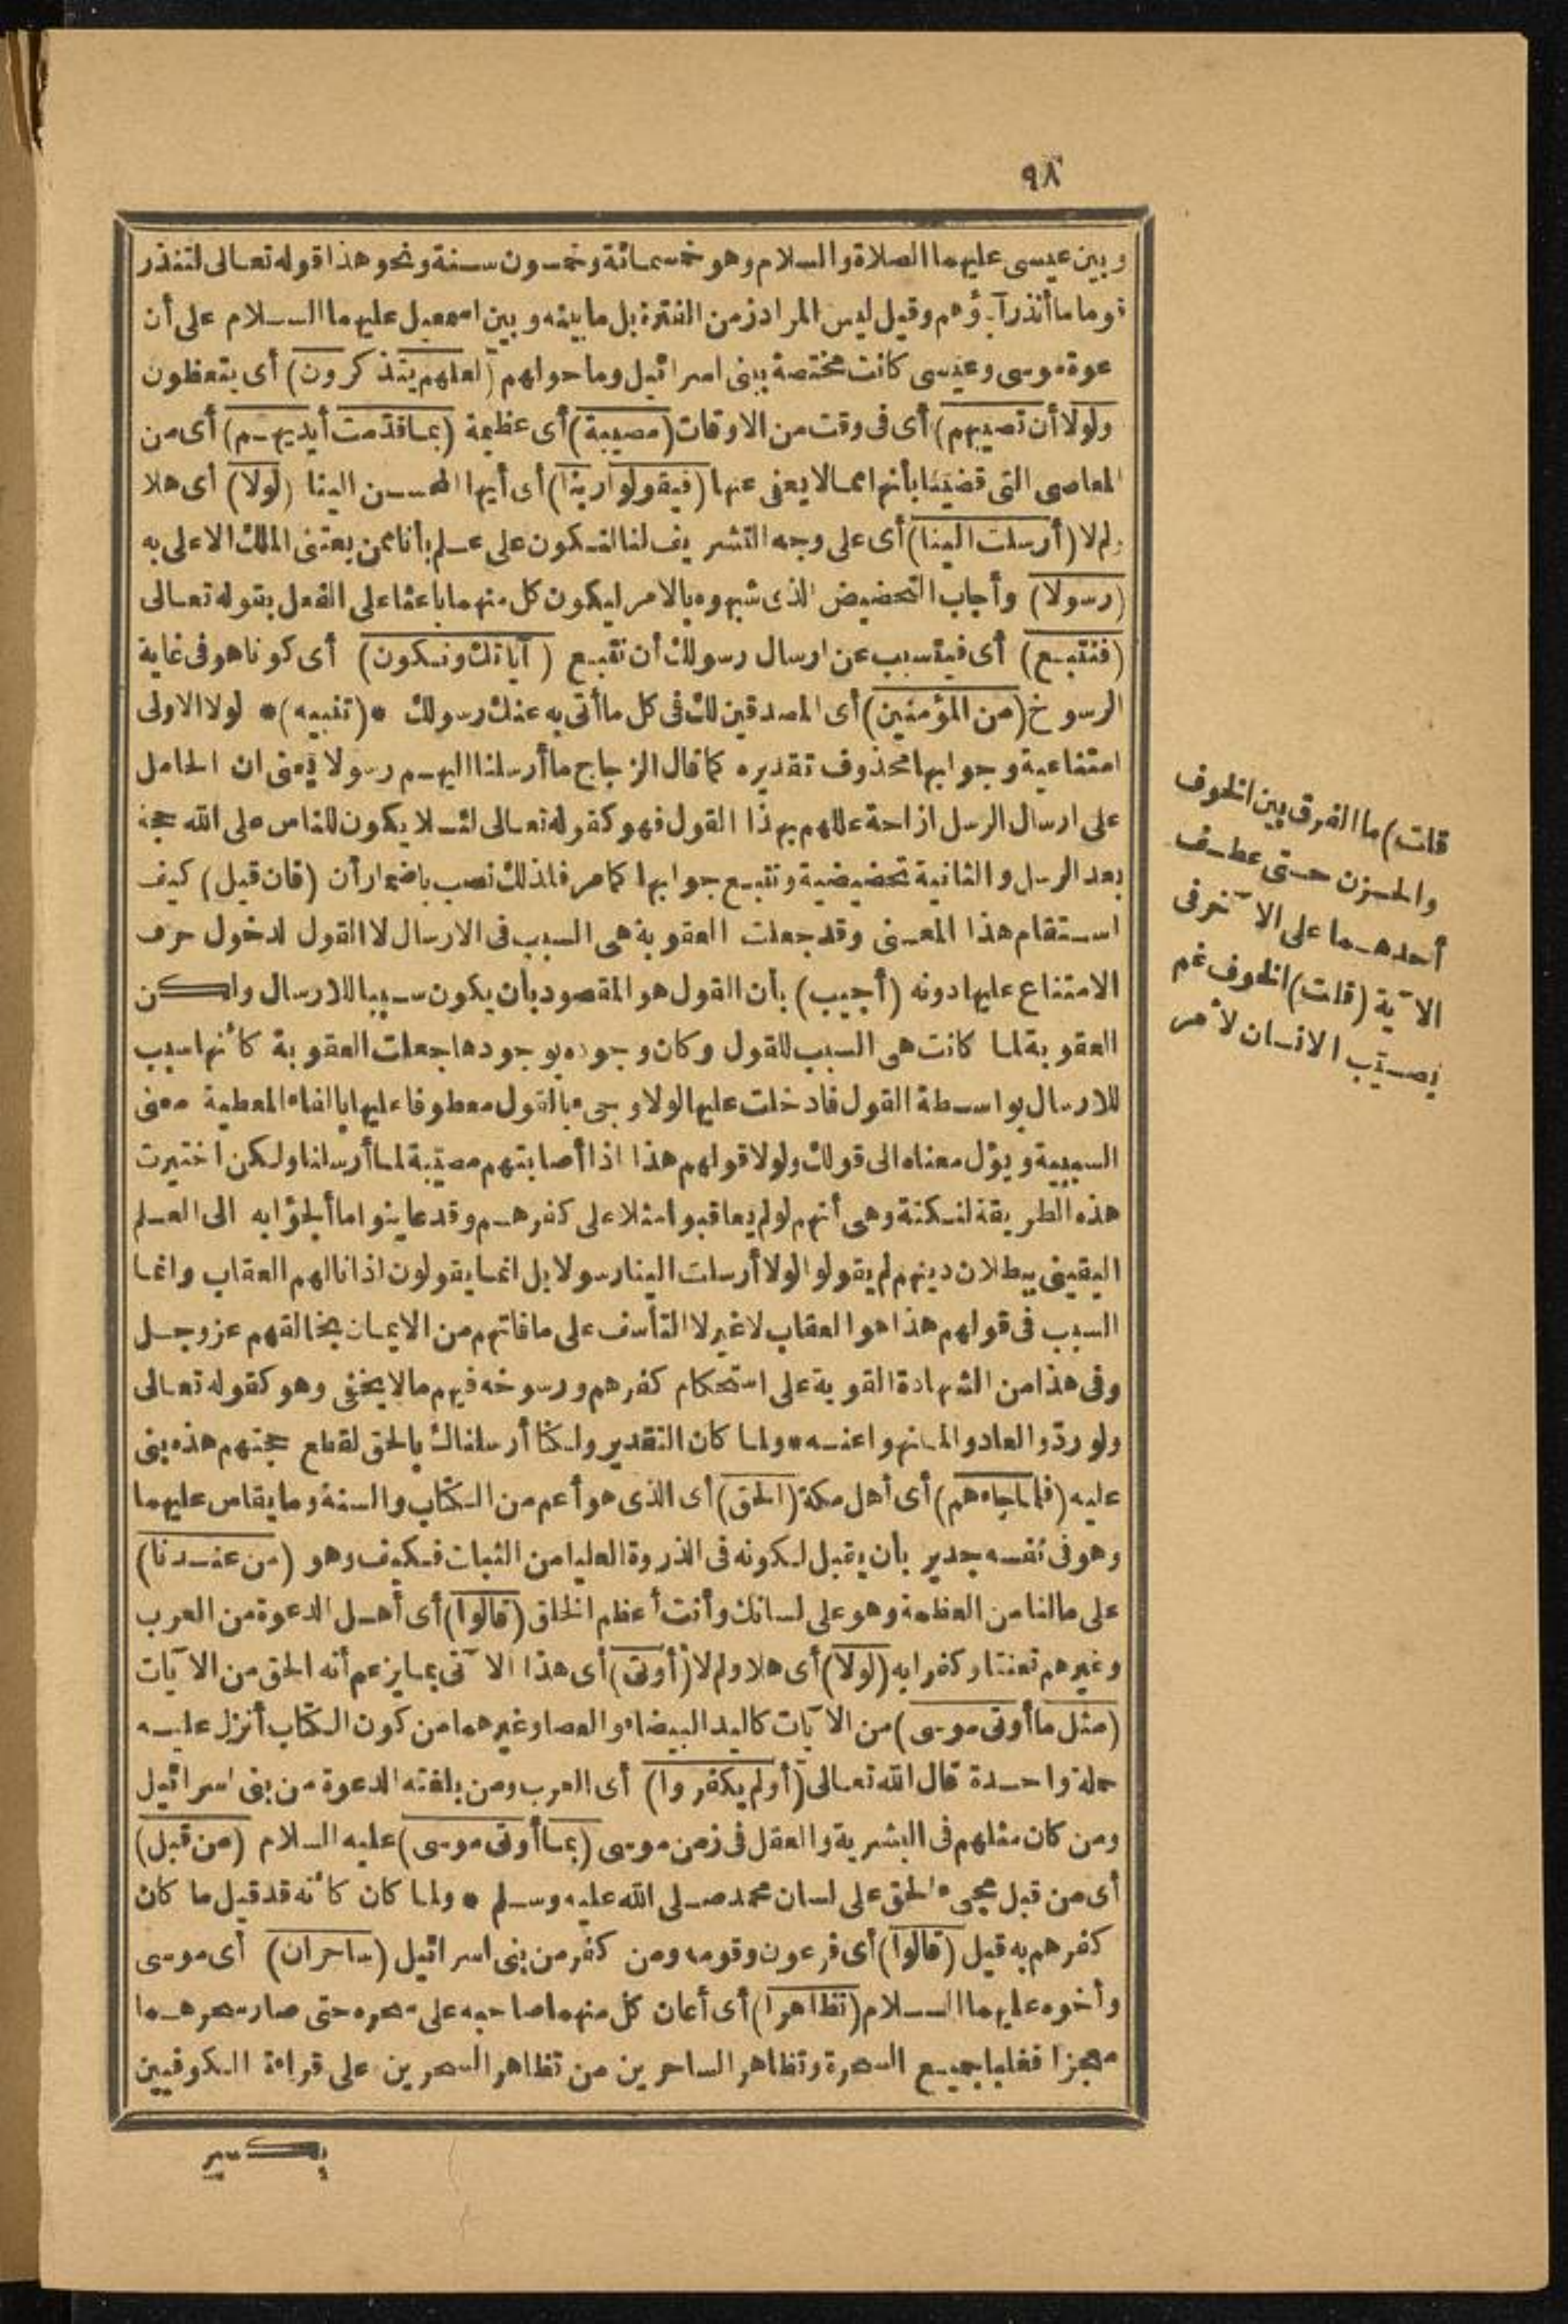 ٩٨
وبين عيسى عليهما الصلاة والسلام وهو خمسمائة وخمسون سنة ونحو هذا قوله تعالى لتنذر
قوما ما أنذر آباؤهم وقيل ليس المراد زمن الفترة بل ما بينه وبين اسمعيل عليهما السلام على أن
عوة موسى وعيسى كانت مختصة ببنى اسرائيل وما حولهم (لعلهم يتذكرون) أى يتعظون
ولولا أن تصيبهم) أى فى وقت من الاوقات (مصيبة) أى عظيمة (بما قدّمت أيديهم) أى من
المعاصى التى قضينا بأنها مما لا يعفى عنها (فيقولوا ربنا) أى أيها المحسن الينا (لولا) أى هلا
ولم لا (أرسلت الينا) أى على وجه التشريف لنا لنكون على علم بأنا ممن يعتنى الملك الاعلى به
(رسولا) وأجاب التحضيض الذى شبهوه بالامر ليكون كل منهما باعثا على الفعل بقوله تعالى
(فنتبع) أى فيتسبب عن ارسال رسولك أن نتبع (آياتك ونكون) أى كونا هو فى غاية
الرسوخ (من المؤمنين) أى المصدقين لك فى كل ما أتى به عنك رسولك * (تنبيه) * لولا الاولى
امتناعية وجوابها محذوف تقديره كما قال الزجاج ما أرسلنا اليهم رسولا يعنى ان الحامل
على ارسال الرسل ازاحة عللهم بهذا القول فهو كقوله تعالى لئلا يكون للناس على الله حجة
بعد الرسل والثانية تحضيضية ونتبع جوابها كما مر فلذلك نصب باضمار أن (فان قيل) كيف
استقام هذا المعنى وقد جعلت العقوبة هى السبب فى الارسال لا القول لدخول حرف
الامتناع عليها دونه (أجيب) بأن القول هو المقصود بأن يكون سببا للارسال ولكن
العقوبة لما كانت هى السبب للقول وكان وجوده بوجودها جعلت العقوبة كأنها سبب
للارسال بواسطة القول فادخلت عليها لولا وجىء بالقول معطوفا عليها بالفاء المعطية معنى
السببية ويؤل معناه الى قولك ولولا قولهم هذا اذا أصابتهم مصيبة لما أرسلنا ولكن اختيرت
هذه الطريقة لنكتة وهى أنهم لو لم يعاقبوا مثلا على كفرهم وقد عاينوا ما ألجؤا به الى العلم
اليقينى ببطلان دينهم لم يقولوا لولا أرسلت الينا رسولا بل انما يقولون اذا نالهم العقاب وانما
السبب فى قولهم هذا هو العقاب لا غير لا التأسف على ما فاتهم من الايمان بخالقهم عز وجل
وفى هذا من الشهادة القوية على استحكام كفرهم ورسوخه فيهم ما لا يخفى وهو كقوله تعالى
ولو ردّوا لعادوا لما نهوا عنه * ولما كان التقدير ولكنا أرسلناك بالحق لقطع حجتهم هذه بنى
عليه (فلما جاءهم) أى أهل مكة (الحق) أى الذى هو أعم من الكتاب والسنة وما يقاس عليهما
وهو فى نفسه جدير بأن يقبل لكونه فى الذروة العليا من الثبات فكيف وهو (من عندنا)
على ما لنا من العظمة وهو على لسانك وأنت أعظم الخلق (قالوا) أى أهل الدعوة من العرب
وغيرهم تعنتا وكفرا به (لولا) أى هلا ولم لا (أوتى) أى هذا الآتى بما يزعم أنه الحق من الآيات
(مثل ما أوتى موسى) من الآيات كاليد البيضاء والعصا وغيرهما من كون الكتاب أنزل عليه
جملة واحدة قال الله تعالى (أولم يكفروا) أى العرب ومن بلغته الدعوة من بنى اسرائيل
ومن كان مثلهم فى البشرية والعقل فى زمن موسى (بما أوتى موسى) عليه السلام (من قبل)
أى من قبل مجىء الحق على لسان محمد صلى الله عليه وسلم * ولما كان كأنه قد قيل ما كان
كفرهم به قيل (قالوا) أى فرعون وقومه ومن كفر من بنى اسرائيل (ساحران) أى موسى
وأخوه عليهما السلام (تظاهرا) أى أعان كل منهما صاحبه على سحره حتى صار سحرهما
معجزا فغلبا جميع السحرة وتظاهر الساحرين من تظاهر السحرين على قراءة الكوفيين
بكسر
قلت) ما الفرق بين الخوف
والحزن حتى عطف
أحدهما على الآخر فى
الآية (قلت) الخوف غم
يصيب الانسان لأمر